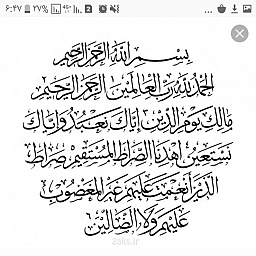 ۶:۴۷ ۲۷% 4G+
بسم الله الرحمن الرحيم
الحمد لله رب العالمين الرحمن الرحيم
مالك يوم الدين إياك نعبد وإياك
نستعين اهدنا الصراط المستقيم صراط
الذين أنعمت عليهم غير المغضوب
عليهم ولا الضالين
2aks.ir